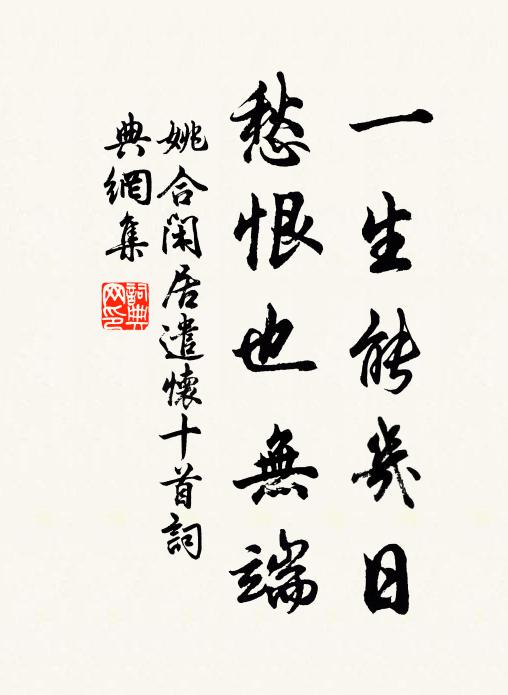 一生能幾日
愁恨也無端
姚合閑居遣懷十首詞
典網集
詞典網印